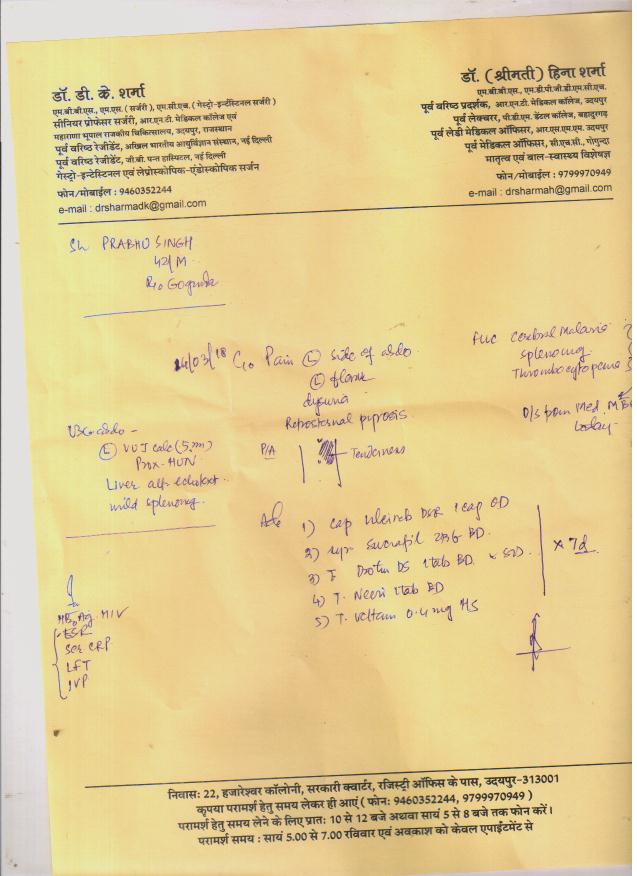 डॉ. डी. के. शर्मा
एम.बी.बी.एस., एम.एस. ( सर्जरी ), एम.सी.एच. ( गेस्ट्रो-इन्टेंस्टिनल सर्जरी )
सीनियर प्रोफेसर सर्जरी, आर.एन.टी. मेडिकल कॉलेज एवं
महाराणा भूपाल राजकीय चिकित्सालय, उदयपुर, राजस्थान
पूर्व वरिष्ठ रेजीडेंट, अखिल भारतीय आयुर्विज्ञान संस्थान, नई दिल्ली
पूर्व वरिष्ठ रेजीडेंट, जी.बी. पन्त हास्पिटल, नई दिल्ली
गेस्ट्रो-इन्टेस्टिनल एवं लेप्रोस्कोपिक-एंडोस्कोपिक सर्जन
फोन/मोबाईल : 9460352244
e-mail : drsharmadk@gmail.com
डॉ. (श्रीमती) हिना शर्मा
एम.बी.बी.एस., एम.डी.पी.जी.डी.एम.सी.एच.
पूर्व वरिष्ठ प्रदर्शक, आर.एन.टी. मेडिकल कॉलेज, उदयपुर
पूर्व लेक्चरर, पी.डी.एम. डेंटल कॉलेज, बहादुरगढ़
पूर्व लेडी मेडिकल ऑफिसर, आर.एस.एम.एम. उदयपुर
पूर्व मेडिकल ऑफिसर, सी.एच.सी., गोगुन्दा
मातृत्व एवं बाल-स्वास्थ्य विशेषज्ञ
फोन/मोबाईल : 9799970949
e-mail : drsharmah@gmail.com
Sh PRABHU SINGH
42/M
R/o Gogunda
14/03/18 C/o Pain (L) side of abdo.
(L) flank
dysuria
Retrosternal pyrosis
FUC Cerebral Malaria
Splenomeg
Thrombocytopenia
D/s from Med. MB
today.
USG abdo -
(L) VUJ calc (5mm)
Prox. HUN
Liver alt echotext.
mild splenomeg.
P/A Tenderness
Adv 1) cap DSR 1 cap OD
2) syr Sucrafil 2 BD.
3) T. Drotin DS 1tab BD x 5D.
4) T. Neeri 1tab BD
5) T. Veltam 0.4 mg HS
x 7d
HIV
ESR
CRP
LFT
IVP
निवास: 22, हजारेश्वर कॉलोनी, सरकारी क्वार्टर, रजिस्ट्री ऑफिस के पास, उदयपुर-313001
कृपया परामर्श हेतु समय लेकर ही आएं ( फोन: 9460352244, 9799970949 )
परामर्श हेतु समय लेने के लिए प्रात: 10 से 12 बजे अथवा सायं 5 से 8 बजे तक फोन करें।
परामर्श समय : सायं 5.00 से 7.00 रविवार एवं अवकाश को केवल एपाईंटमेंट से